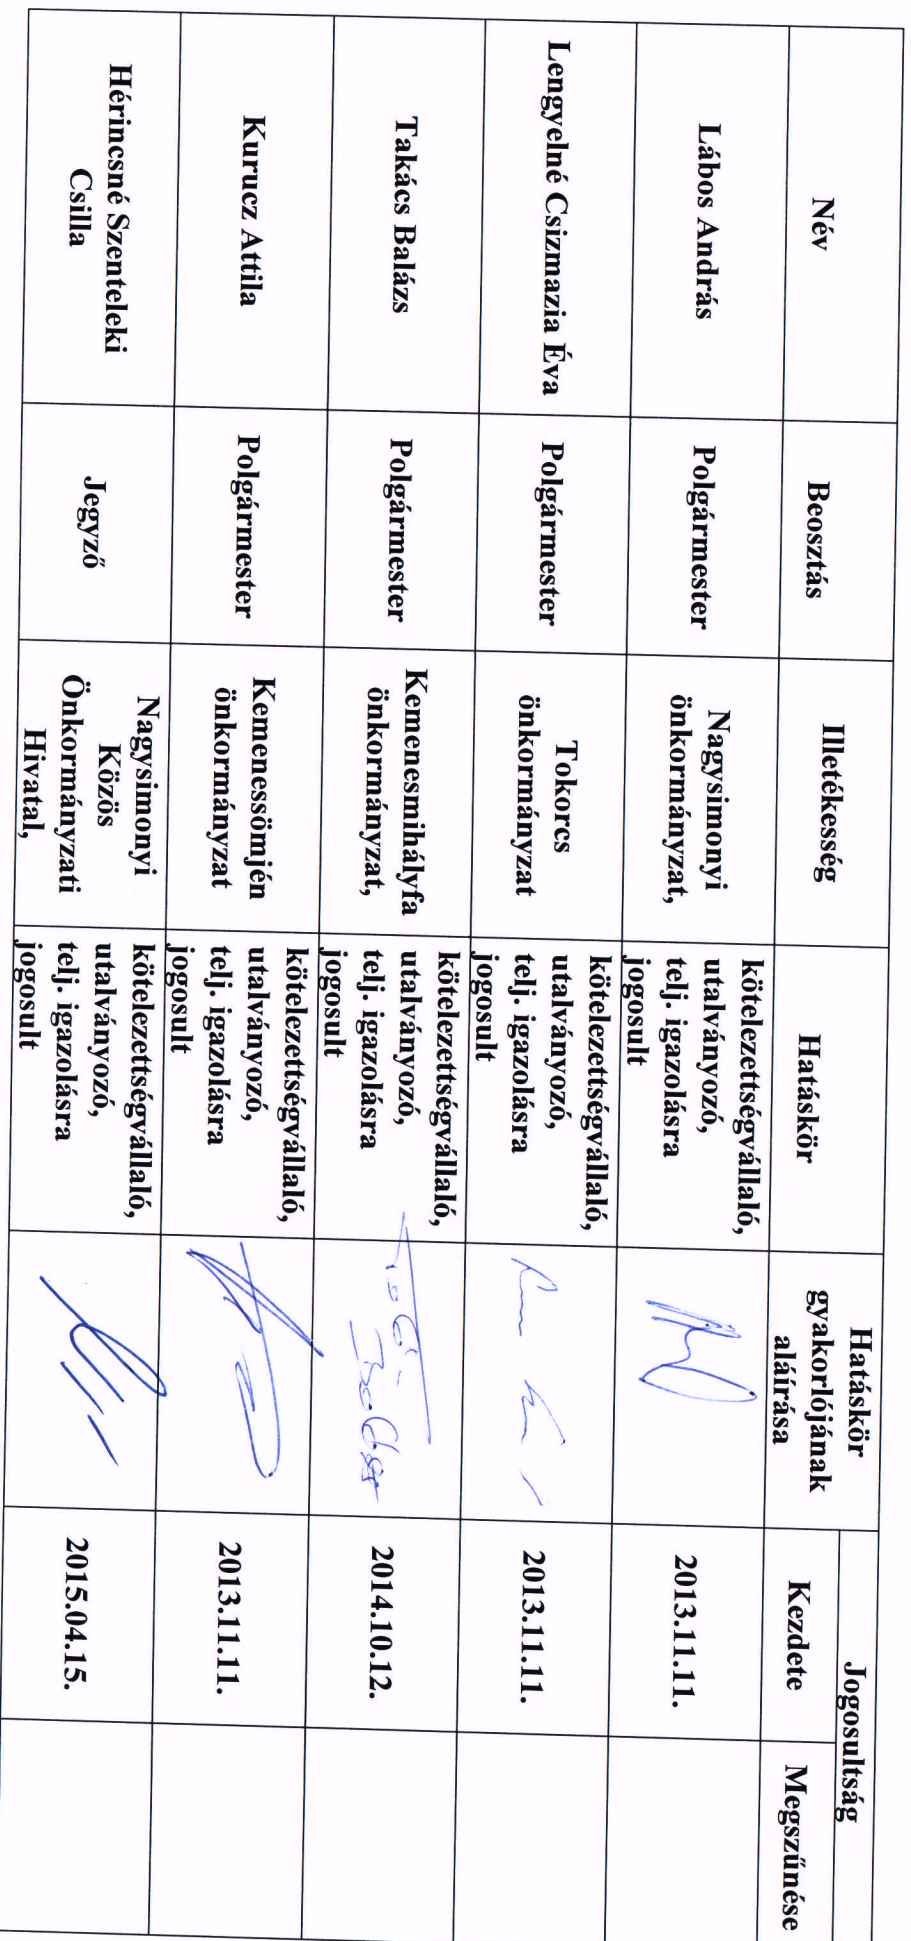 Név
Beosztás
Illetékesség
Hatáskör
Hatáskör
gyakorlójának
aláírása
Jogosultság
Kezdete
Megszűnése
Lábos András
Polgármester
Nagysimonyi
önkormányzat,
kötelezettségvállaló,
utalványozó,
telj. igazolásra
jogosult
2013.11.11.
Lengyelné Csizmazia Éva
Polgármester
Tokorcs
önkormányzat
kötelezettségvállaló,
utalványozó,
telj. igazolásra
jogosult
2013.11.11.
Takács Balázs
Polgármester
Kemenesmihályfa
önkormányzat,
kötelezettségvállaló,
utalványozó,
telj. igazolásra
jogosult
2014.10.12.
Kurucz Attila
Polgármester
Kemenessömjén
önkormányzat
kötelezettségvállaló,
utalványozó,
telj. igazolásra
jogosult
2013.11.11.
Hérincsné Szenteleki
Csilla
Jegyző
Nagysimonyi
Közös
Önkormányzati
Hivatal,
kötelezettségvállaló,
utalványozó,
telj. igazolásra
jogosult
2015.04.15.